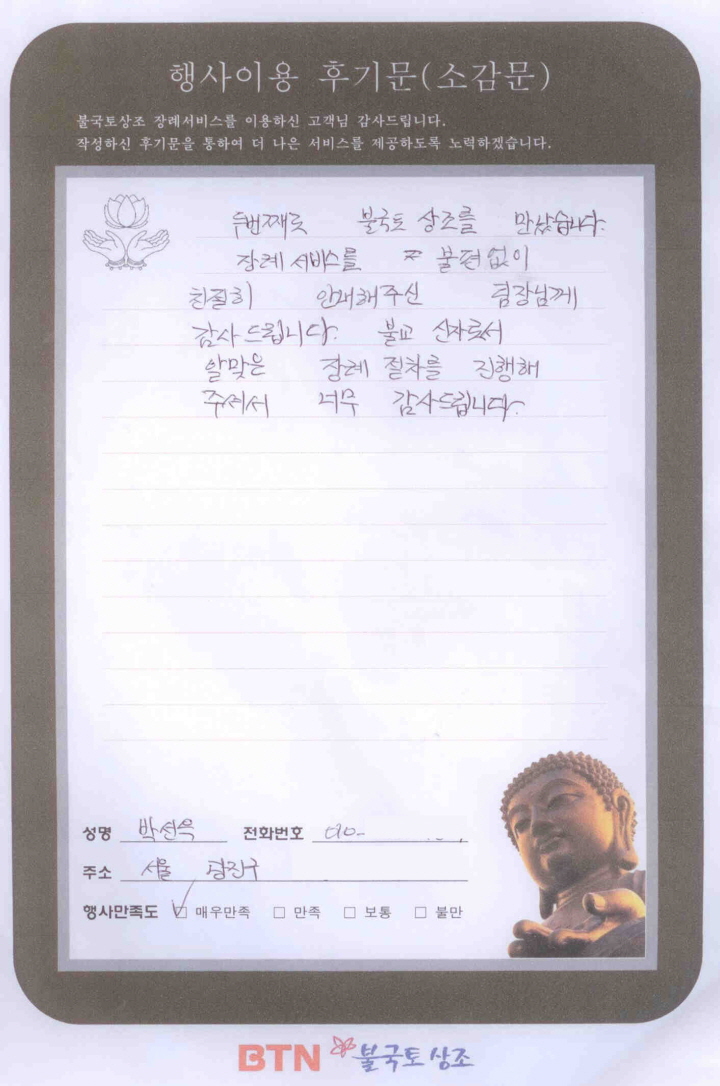 행사이용 후기문(소감문)
불국토상조 장례서비스를 이용하신 고객님 감사드립니다.
작성하신 후기문을 통하여 더 나은 서비스를 제공하도록 노력하겠습니다.
두번째로 불국토 상조를 만났습니다.
장례 서비스를 불편 없이
친절히 안내해 주신 팀장님께
감사 드립니다. 불교 신자로서
알맞은 장례 절차를 진행해
주셔서 너무 감사드립니다.
성명 박선옥 전화번호 010-
주소 서울 광진구
행사만족도 ☑ 매우만족 □ 만족 □ 보통 □ 불만
BTN 불국토 상조